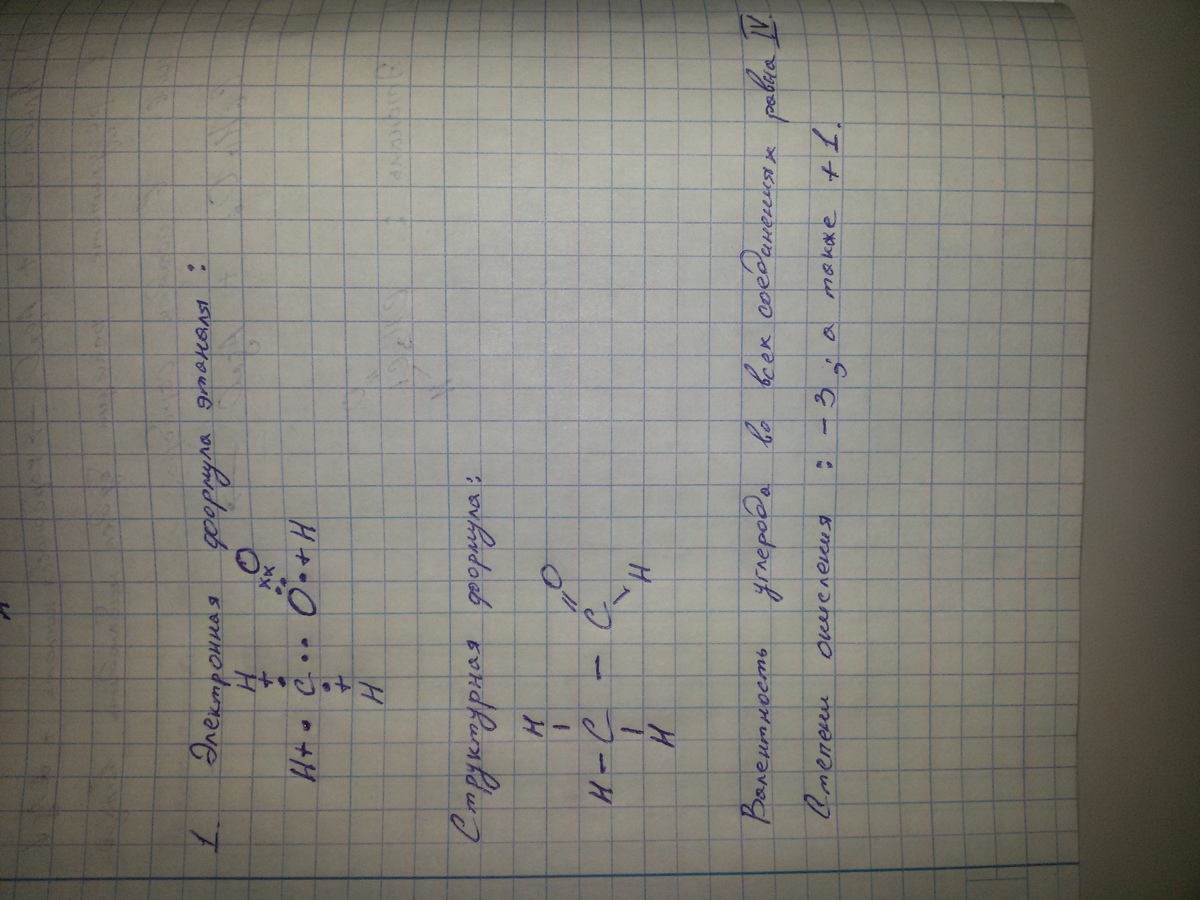 1. Электронная формула этаналя:
H O
H+ • C •• O •+ H
H
Структурная формула:
H O
H – C – C
H H
Валентность углерода во всех соединениях равна IV.
Степени окисления: -3; а также +1.